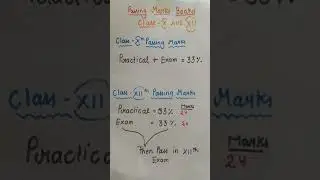 Passing Marks Board
Class - X and XII
Class - Xth Passing Marks
Practical + Exam = 33%.
Class - XIIth Passing Marks
Practical = 33%. Marks 24
Exam = 33%.
Then Pass in XIIth
Exam
Marks
24